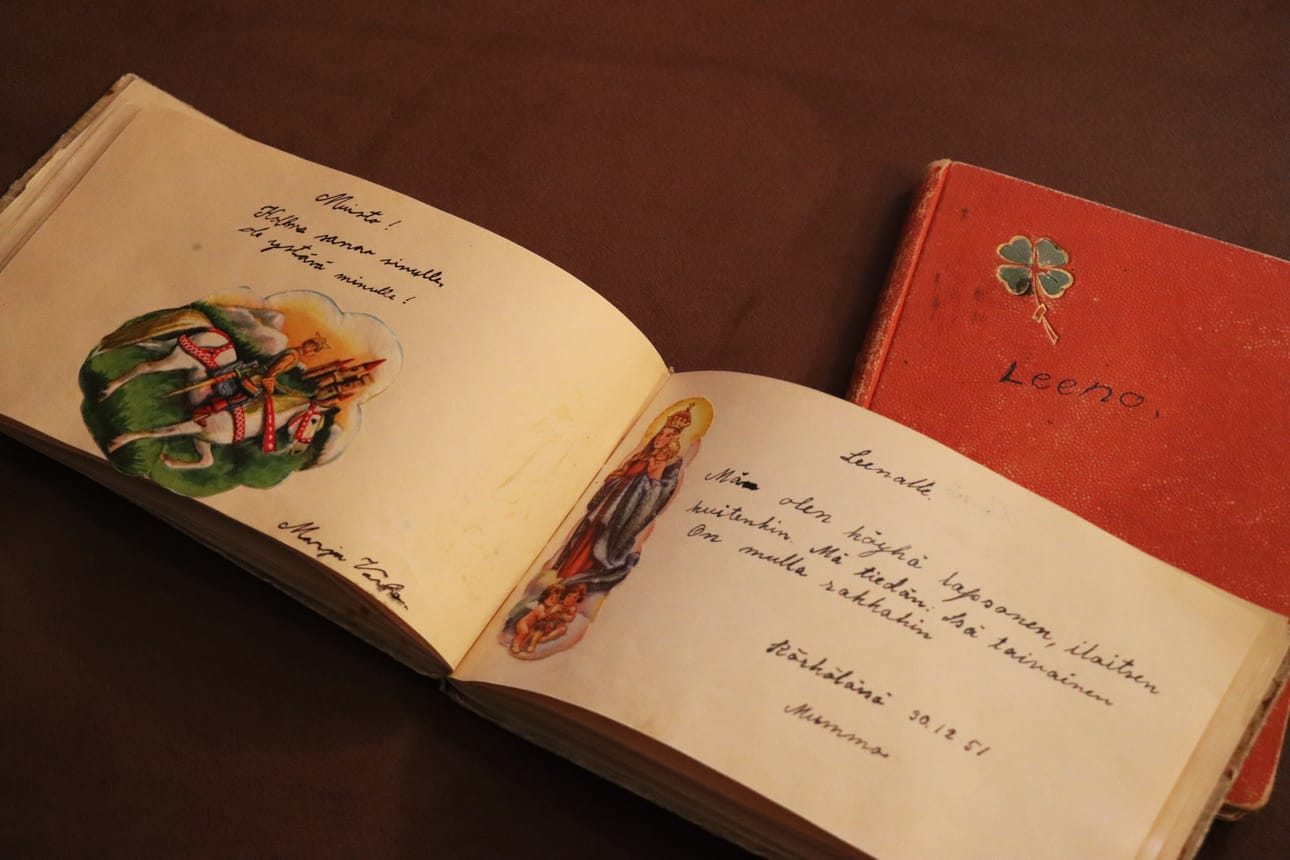 Muisto!
Kolme sanaa sinulle,
ole ystävä minulle!
Marja
Leenalle.
Mä olen köyhä lapsonen, iloitsen
kuitenkin. Mä tiedän: Isä taivainen
On mulla rakkahin
30.12 51
Mummo
Leena.